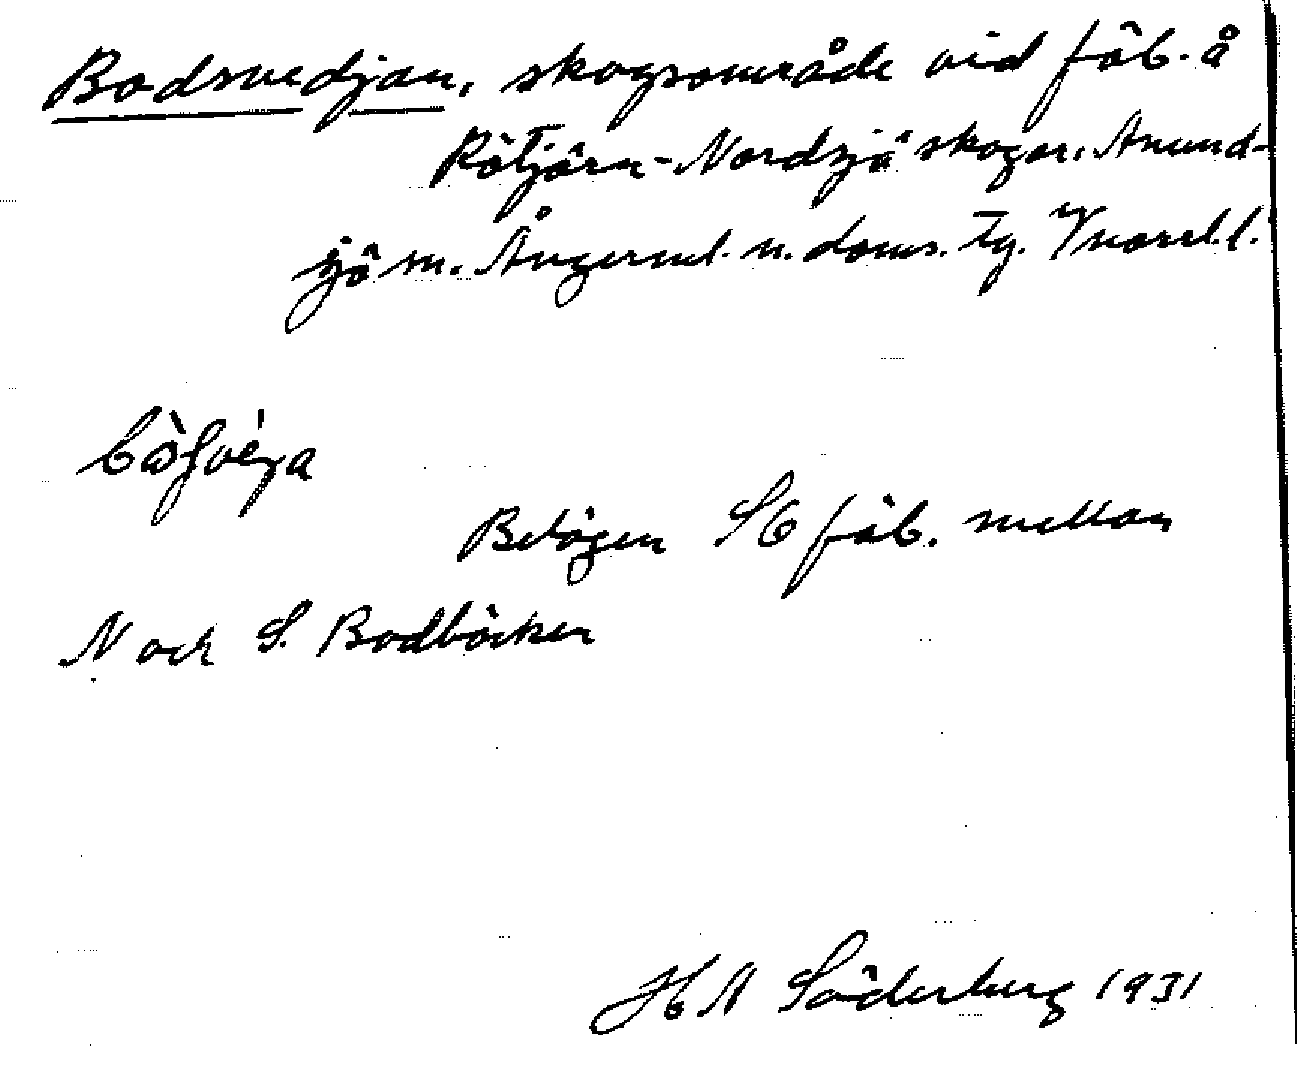 Bodsvedjan, skogsområde vid fäb. å
Rötjärn-Nordsjö skogar. Anund-
sjö sn. Ångerml. n. doms. tg. V/norrl. l.
Belägen SO fäb. mellan
N och S. Bodbäcken
H N Söderberg 1931